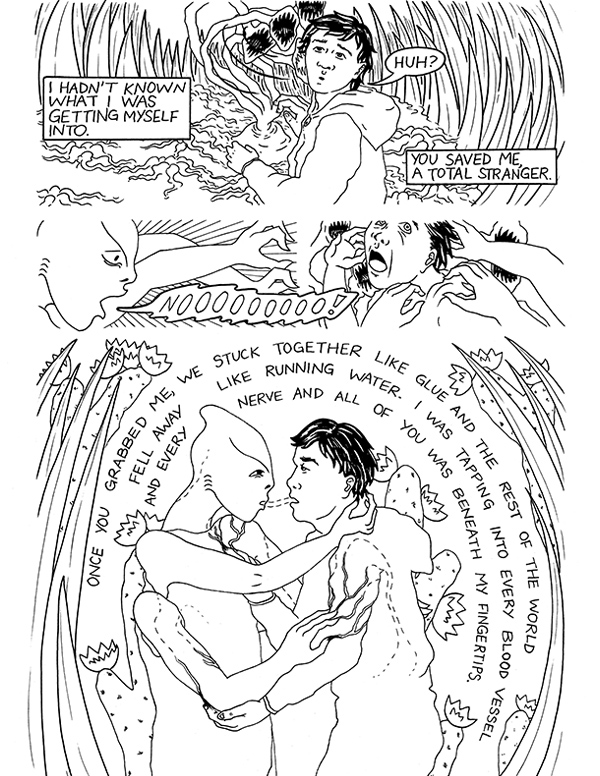 I HADN'T KNOWN
WHAT I WAS
GETTING MYSELF
INTO.
HUH?
YOU SAVED ME,
A TOTAL STRANGER.
NOOOOOOOOO!
ONCE YOU GRABBED ME, WE STUCK TOGETHER LIKE GLUE AND THE REST OF THE WORLD
FELL AWAY LIKE RUNNING WATER. I WAS TAPPING INTO EVERY BLOOD VESSEL
AND EVERY NERVE AND ALL OF YOU WAS BENEATH MY FINGERTIPS.